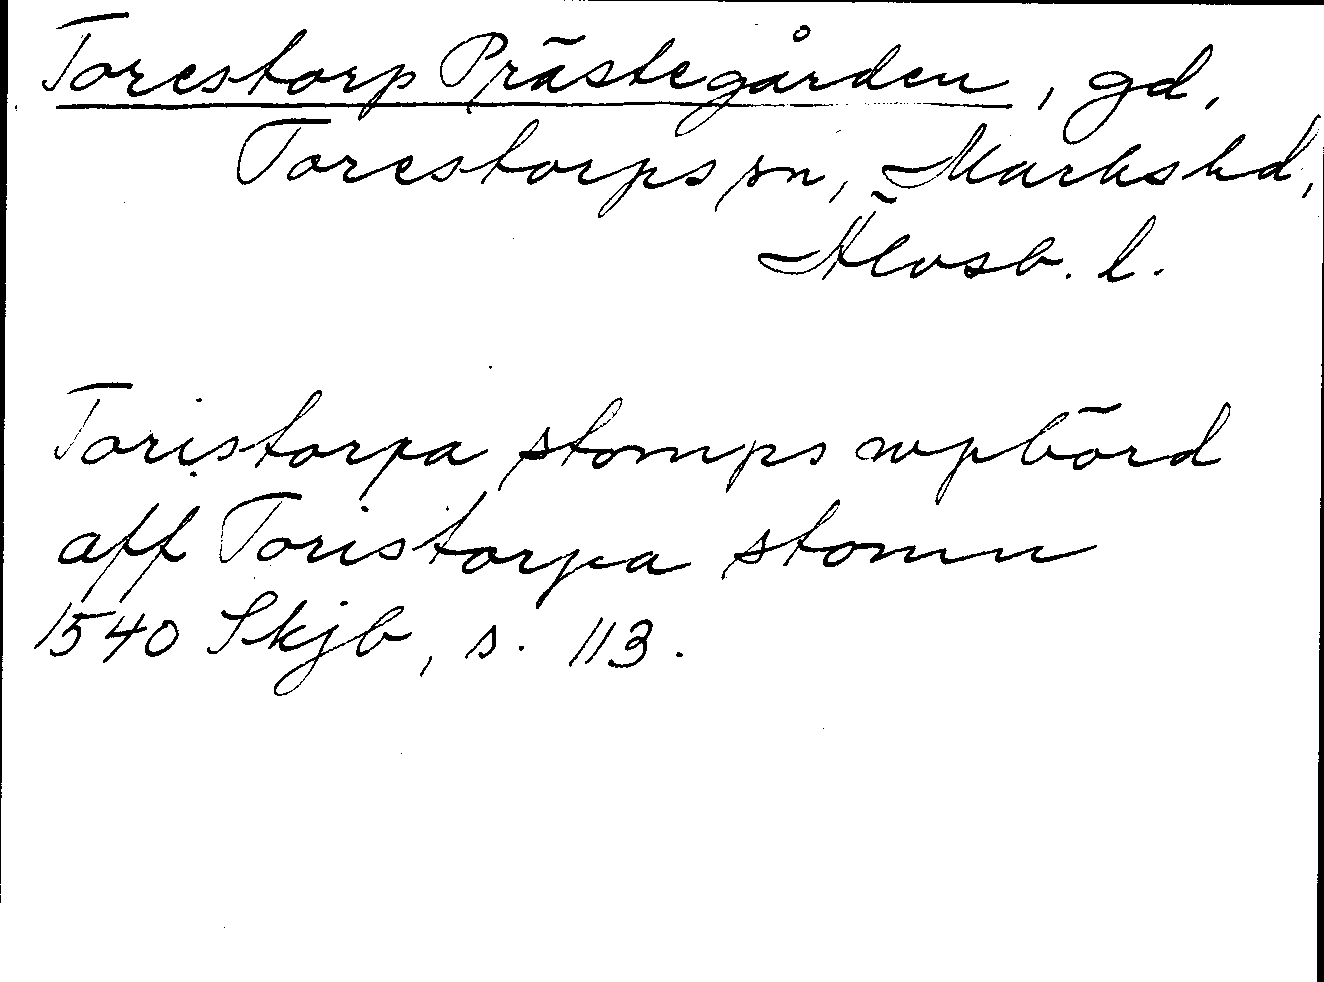 Torestorp Prästegården, gd,
Torestorps sn, Marks hd,
Älvsb. l.
Toristorpa stomps wpbörd
aff Toristorpa stomn
1540 Skjb, s. 113.